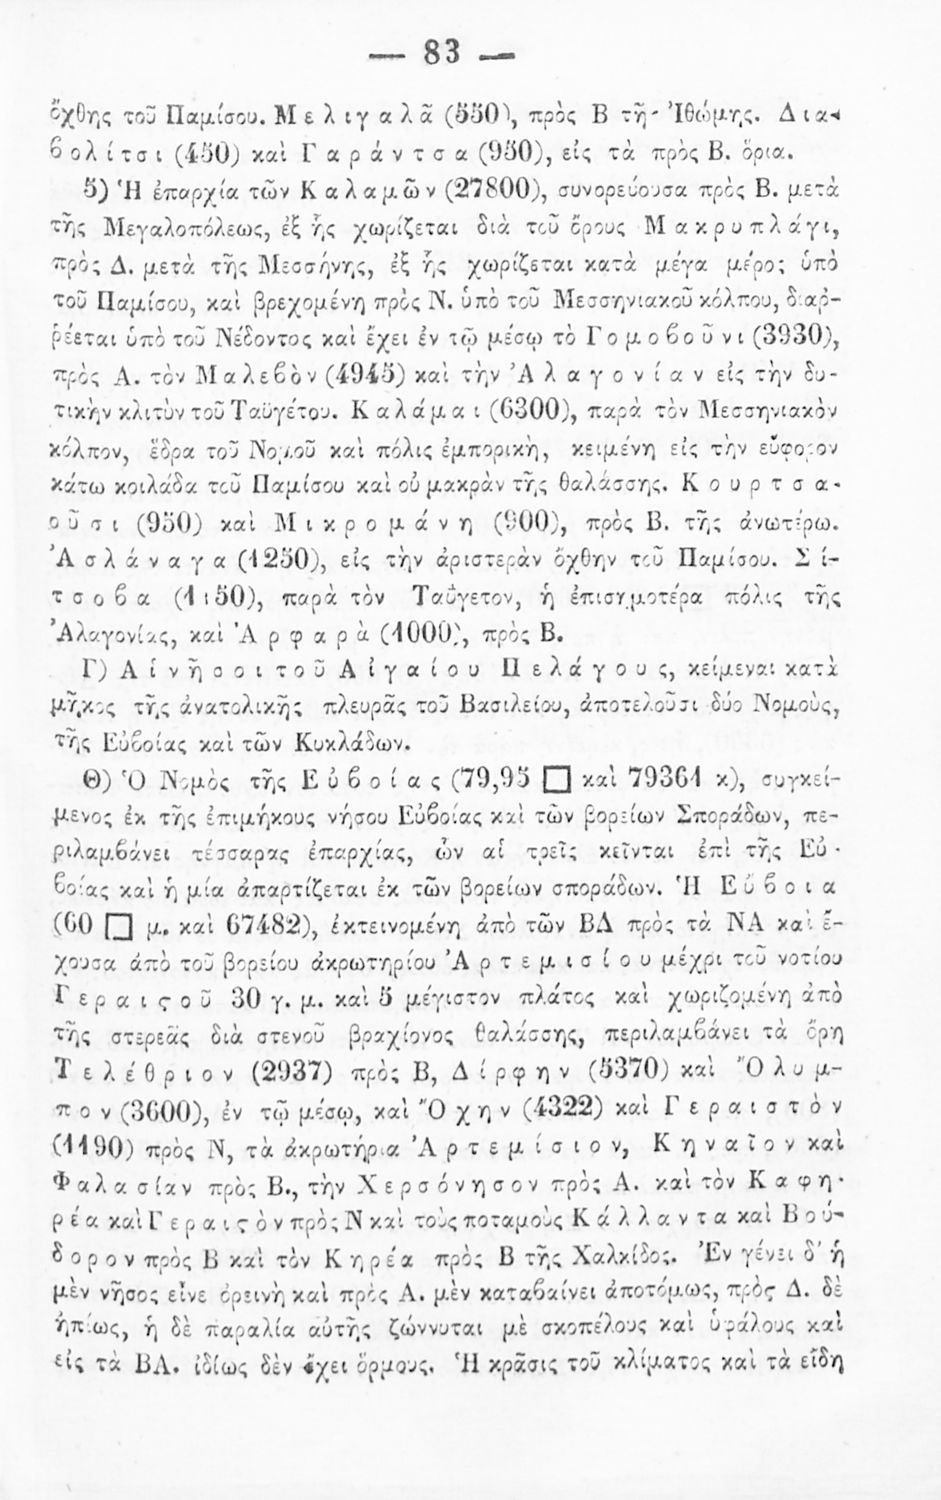 — 83 —
ὄχθης τοῦ Παμίσου. Μελιγαλᾶ (550), πρὸς Β τῆς Ἰθώμης. Δια-
βολίτσι (450) καὶ Γαράντσα (950), εἰς τὰ πρὸς Β. ὅρια.
5) Ἡ ἐπαρχία τῶν Καλαμῶν (27800), συνορεύουσα πρὸς Β. μετὰ
τῆς Μεγαλοπόλεως, ἐξ ἧς χωρίζεται διὰ τοῦ ὄρους Μακρυπλάγι,
πρὸς Δ. μετὰ τῆς Μεσσήνης, ἐξ ἧς χωρίζεται κατὰ μέγα μέρος ὑπὸ
τοῦ Παμίσου, καὶ βρεχομένη πρὸς Ν. ὑπὸ τοῦ Μεσσηνιακοῦ κόλπου, διαῤ-
ῥέεται ὑπὸ τοῦ Νέδοντος καὶ ἔχει ἐν τῷ μέσῳ τὸ Γομοβοῦνι (3930),
πρὸς Α. τὸν Μαλεβὸν (4945) καὶ τὴν Ἀλαγονίαν εἰς τὴν δυ-
τικὴν κλιτὺν τοῦ Ταϋγέτου. Καλάμαι (6300), παρὰ τὸν Μεσσηνιακὸν
κόλπον, ἕδρα τοῦ Νομοῦ καὶ πόλις ἐμπορικὴ, κειμένη εἰς τὴν εὔφορον
κάτω κοιλάδα τοῦ Παμίσου καὶ οὐ μακρὰν τῆς θαλάσσης. Κουρτσα-
οῦσι (950) καὶ Μικρομάνη (900), πρὸς Β. τῆς ἀνωτέρω.
Ἀσλάναγα (1250), εἰς τὴν ἀριστερὰν ὄχθην τοῦ Παμίσου. Σί-
τσοβα (1150), παρὰ τὸν Ταΰγετον, ἡ ἐπισημοτέρα πόλις τῆς
Ἀλαγονίας, καὶ Ἀρφαρὰ (1000), πρὸς Β.
Γ) Αἱ νῆσοι τοῦ Αἰγαίου Πελάγους, κείμεναι κατὰ
μῆκος τῆς ἀνατολικῆς πλευρᾶς τοῦ Βασιλείου, ἀποτελοῦσι δύο Νομοὺς,
τῆς Εὐβοίας καὶ τῶν Κυκλάδων.
Θ) Ὁ Νομὸς τῆς Εὐβοίας (79,95 □ καὶ 79361 κ), συγκεί-
μενος ἐκ τῆς ἐπιμήκους νήσου Εὐβοίας καὶ τῶν βορείων Σποράδων, πε-
ριλαμβάνει τέσσαρας ἐπαρχίας, ὧν αἱ τρεῖς κεῖνται ἐπὶ τῆς Εὐ-
βοίας καὶ ἡ μία ἀπαρτίζεται ἐκ τῶν βορείων σποράδων. Ἡ Εὔβοια
(60 □ μ. καὶ 67482), ἐκτεινομένη ἀπὸ τῶν ΒΔ πρὸς τὰ ΝΑ καὶ ἔ-
χουσα ἀπὸ τοῦ βορείου ἀκρωτηρίου Ἀρτεμισίου μέχρι τοῦ νοτίου
Γεραιϛοῦ 30 γ. μ. καὶ 5 μέγιστον πλάτος καὶ χωριζομένη ἀπὸ
τῆς στερεᾶς διὰ στενοῦ βραχίονος θαλάσσης, περιλαμβάνει τὰ ὄρη
Τελέθριον (2937) πρὸς Β, Δίρφην (5370) καὶ Ὄλυμ-
πον (3600), ἐν τῷ μέσῳ, καὶ Ὄχην (4322) καὶ Γεραιστὸν
(1190) πρὸς Ν, τὰ ἀκρωτήρια Ἀρτεμίσιον, Κηναῖον καὶ
Φαλασίαν πρὸς Β., τὴν Χερσόνησον πρὸς Α. καὶ τὸν Καφη-
ρέα καὶ Γεραιϛὸν πρὸς Ν καὶ τοὺς ποταμοὺς Κάλλαντα καὶ Βού-
δορον πρὸς Β καὶ τὸν Κηρέα πρὸς Β τῆς Χαλκίδος. Ἐν γένει δ' ἡ
μὲν νῆσος εἶνε ὀρεινὴ καὶ πρὸς Α. μὲν καταβαίνει ἀποτόμως, πρὸς Δ. δὲ
ἠπίως, ἡ δὲ παραλία αὐτῆς ζώννυται μὲ σκοπέλους καὶ ὑφάλους καὶ
εἰς τὰ ΒΑ. ἰδίως δὲν ἔχει ὅρμους. Ἡ κρᾶσις τοῦ κλίματος καὶ τὰ εἴδη